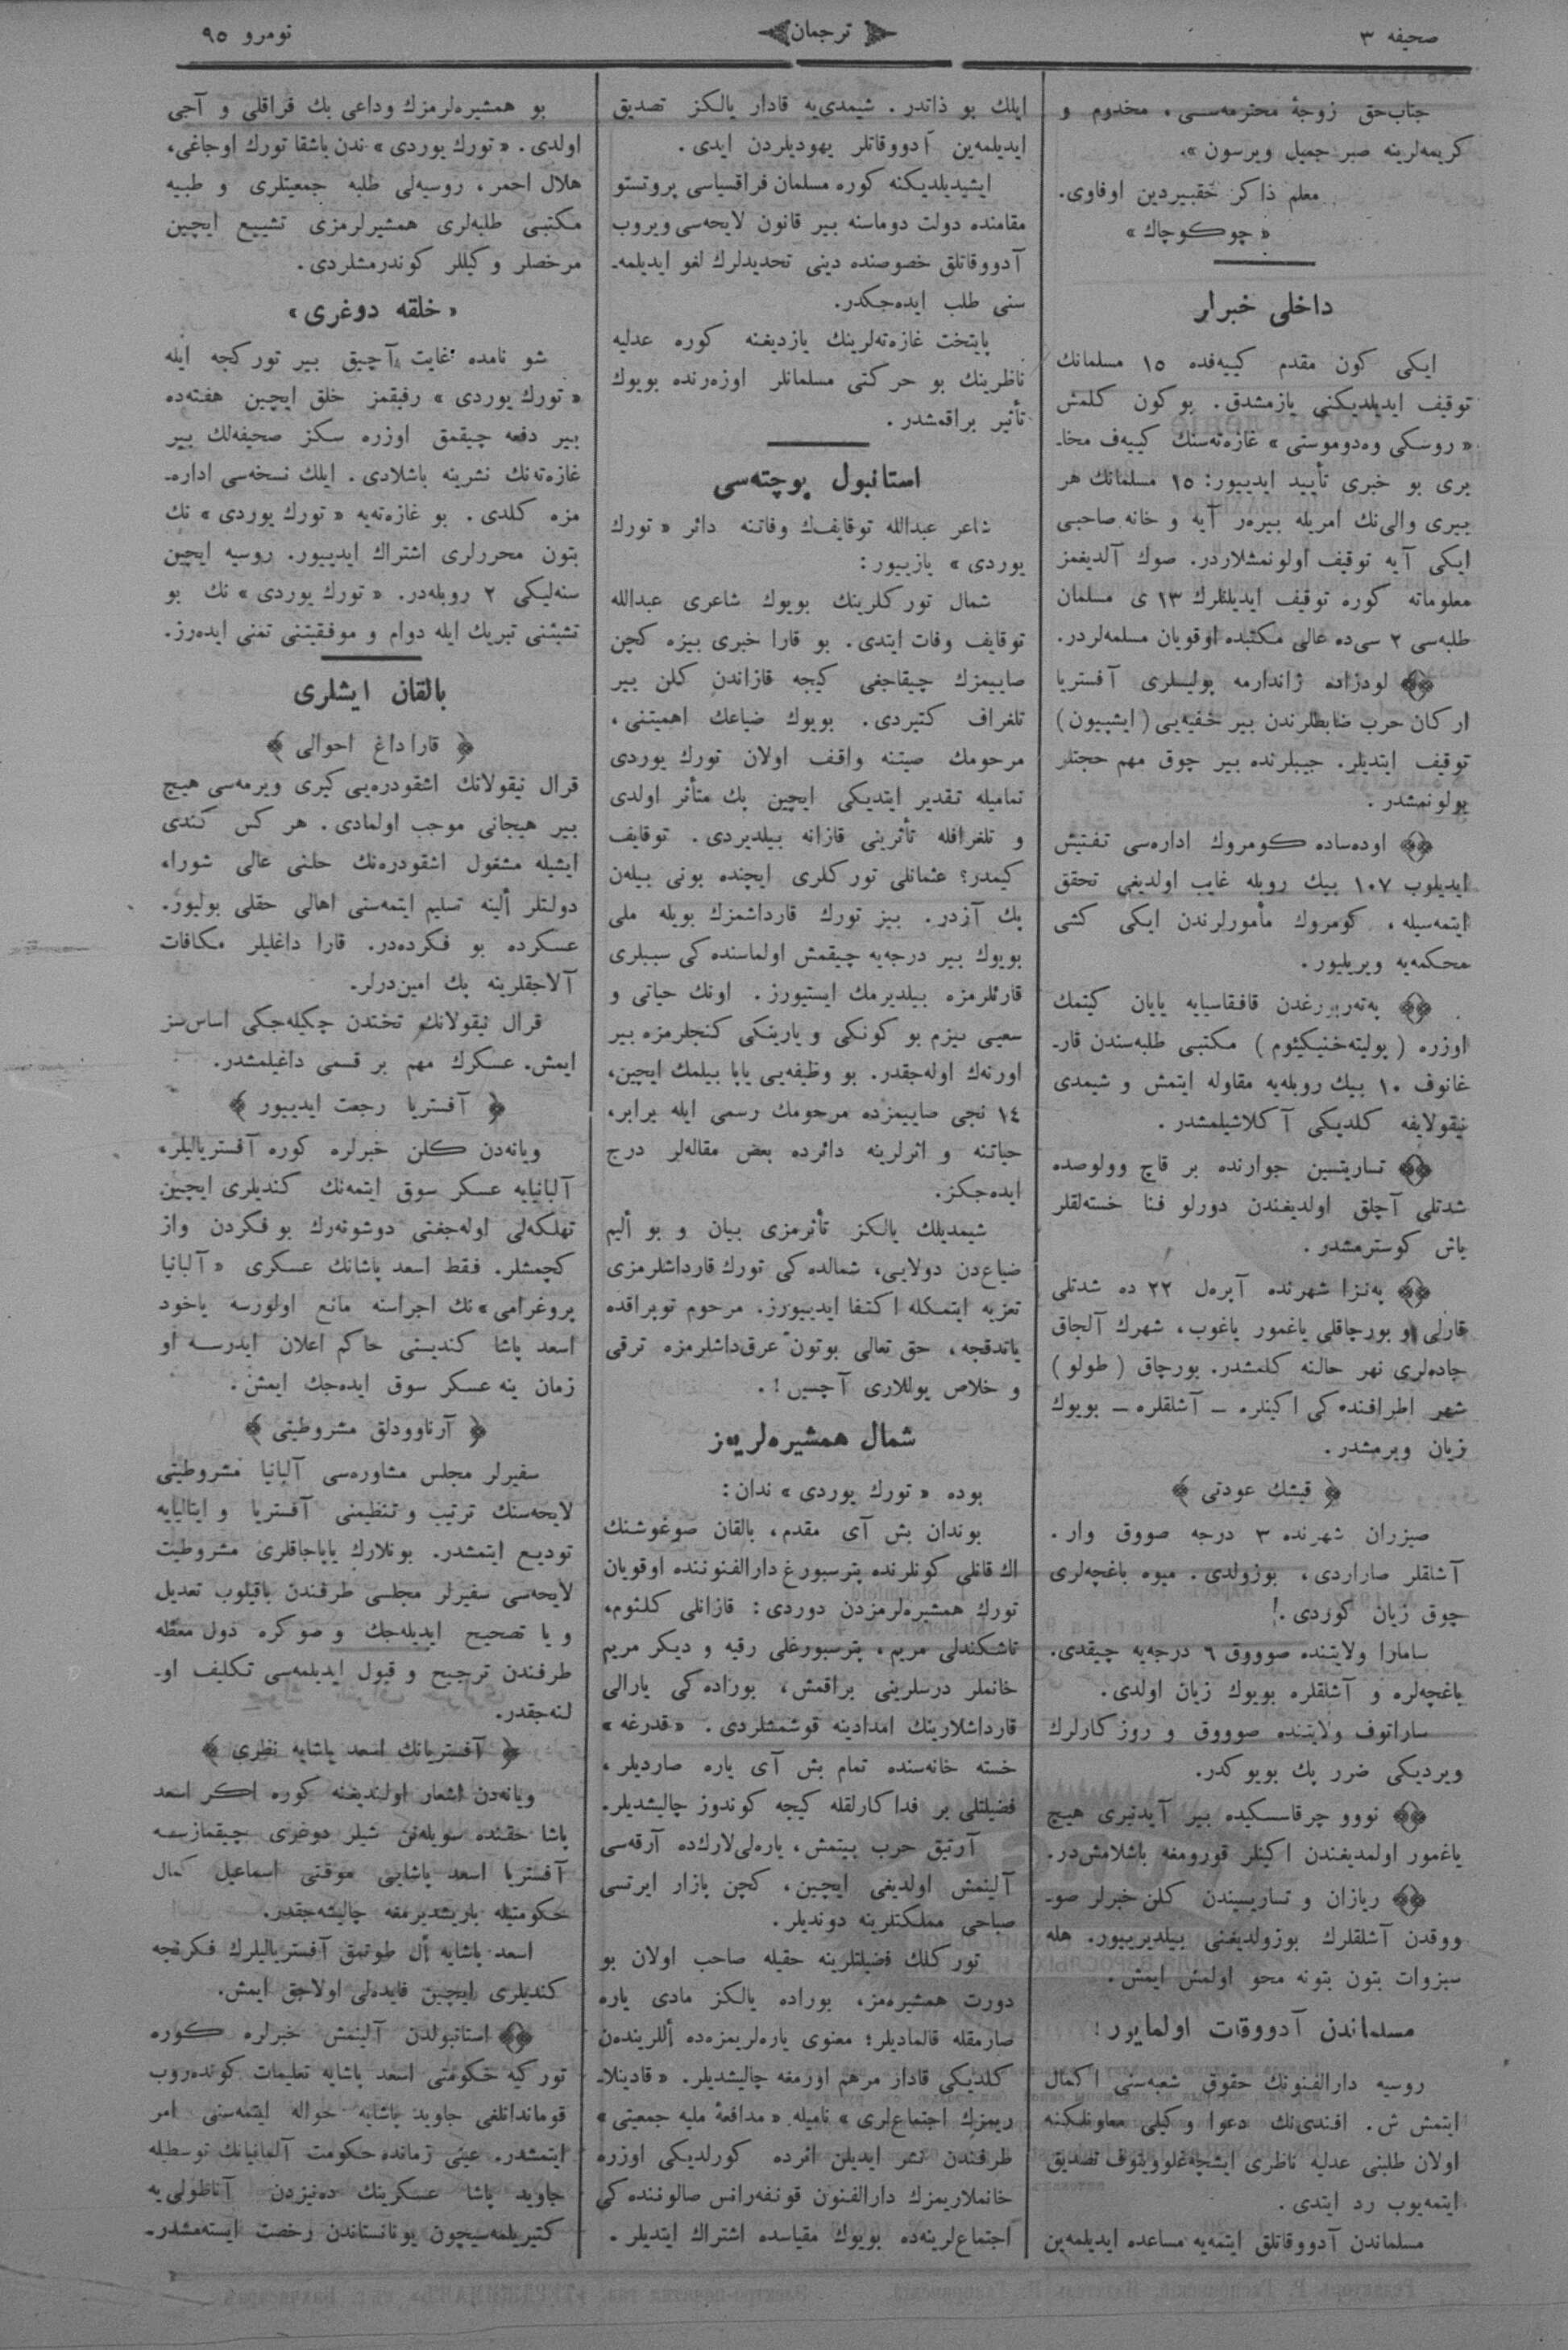 صحیفه ۳
ترجمان
نومرو ۹۵
جناب‌حق زوجهٔ محترمه‌سی، مخدوم و
كریمه‌لرینه صبر جمیل ویرسون».
معلم ذاكر
اوفاوی.
«چوكوچاك»
داخلی خبرلر
ایكی كون مقدم كییه‌فده ۱۵ مسلمانك
توقیف ایدیلدیكنی یازمشدق. بوكون كلمش
«روسكی وه‌دوموستی» غازه‌ته‌سنك كییه‌ف مخا-
بری بو خبری تأیید ایدییور: ۱۵ مسلمانك هر
بیری والی‌نك امریله بیره‌ر آیه و خانه صاحبی
ایكی آیه توقیف اولونمشلاردر. صوك آلدیغمز
معلوماته كوره توقیف ایدیلنلرك ۱۳ ی مسلمان
طلبه‌سی ۲ سی‌ده عالی مكتبده اوقویان مسلمه‌لردر.
لودزاده ژاندارمه پولیسلری آفستریا
اركان حرب ضابطلرندن بیر خفیه‌یی (ایشپیون)
توقیف ایتدیلر. جیبلرنده بیر چوق مهم حجتلر
بولونمشدر.
اوده‌ساده كومروك اداره‌سی تفتیش
ایدیلوب ۱۰۷ بیك روبله غایب اولدیغی تحقق
ایتمه‌سیله، كومروك مأمورلرندن ایكی كشی
محكمه‌یه ویریلیور.
په‌ته‌ربورغدن قافقاسیایه یایان كیتمك
اوزره (پولیته‌خنیكیئوم) مكتبی طلبه‌سندن قار-
غانوف ۱۰ بیك روبله‌یه مقاوله ایتمش و شیمدی
نیقولایفه كلدیكی آكلاشیلمشدر.
تساریتسین جوارنده بر قاچ وولوصده
شدتلی آچلق اولدیغندن دورلو فنا خسته‌لقلر
باش كوسترمشدر.
په‌نزا شهرنده آپره‌ل ۲۲ ده شدتلی
قارلی و بورچاقلی یاغمور یاغوب، شهرك آلچاق
جاده‌لری نهر حالنه كلمشدر. بورچاق (طولو)
شهر اطرافنده‌كی اكینلره – آشلقلره – بویوك
زیان ویرمشدر.
﴿ قیشك عودتی ﴾
صیزران شهرنده ۳ درجه صووق وار.
آشلقلر صاراردی، بوزولدی. میوه باغچه‌لری
چوق زیان كوردی.!
سامارا ولایتنده صوووق ٦ درجه‌یه چیقدی.
باغچه‌لره و آشلقلره بویوك زیان اولدی.
ساراتوف ولایتنده صوووق و روزكارلرك
ویردیكی ضرر پك بویوكدر.
نووو چرقاسسكیده بیر آیدنبری هیچ
یاغمور اولمدیغندن اكینلر قورومغه باشلامش‌در.
ریازان و تساریسیندن كلن خبرلر صو-
ووقدن آشلقلرك بوزولدیغنی بیلدیرییور. هله
سبزوات بتون بتونه محو اولمش ایمش.
مسلماندن آدووقات اولمایور!
روسیه دارالفنونك حقوق شعبه‌سنی اكمال
ایتمش ش. افندی‌نك دعوا وكیلی معاونلكنه
اولان طلبنی عدلیه ناظری ایشچه‌غلوویتوف تصدیق
ایتمه‌یوب رد ایتدی.
مسلماندن آدووقاتلق ایتمه‌یه مساعده ایدیلمه‌ین
ایلك بو ذاتدر. شیمدی‌یه قادار یالكز تصدیق
ایدیلمه‌ین آدووقاتلر یهودیلردن ایدی.
ایشیدیلدیكنه كوره مسلمان فراقسیاسی پروتستو
مقامنده دولت دوماسنه بیر قانون لایحه‌سی ویروب
آدووقاتلق خصوصنده دینی تحدیدلرك لغو ایدیلمه-
سنی طلب ایده‌جكدر.
پایتخت غازه‌ته‌لرینك یازدیغنه كوره عدلیه
ناظرینك بو حركتی مسلمانلر اوزه‌رنده بویوك
تأثیر براقمشدر.
استانبول پوچته‌سی
شاعر عبدالله توقایف‌ك وفاتنه دائر «تورك
یوردی» یازییور:
شمال توركلرینك بویوك شاعری عبدالله
توقایف وفات ایتدی. بو قارا خبری بیزه كچن
صاییمزك چیقاجغی كیجه قازاندن كلن بیر
تلغراف كتیردی. بویوك ضیاعك اهمیتنی،
مرحومك صیتنه واقف اولان تورك یوردی
تمامیله تقدیر ایتدیكی ایچین پك متأثر اولدی
و تلغرافله تأثرینی قازانه بیلدیردی. توقایف
كیمدر؟ عثمانلی توركلری ایچنده بونی بیله‌ن
پك آزدر. بیز تورك قارداشمزك بویله ملی
بویوك بیر درجه‌یه چیقمش اولماسنده‌كی سببلری
قارئلرمزه بیلدیرمك ایستیورز. اونك حیاتی و
سعیی بیزم بو كونكی و یارینكی كنجلرمزه بیر
اورنه‌ك اوله‌جقدر. بو وظیفه‌یی یاپا بیلمك ایچین،
۱٤ نجی صاییمزده مرحومك رسمی ایله برابر،
حیاتنه و اثرلرینه دائرده بعض مقاله‌لر درج
ایده‌جكز.
شیمدیلك یالكز تأثرمزی بیان و بو ألیم
ضیاع‌دن دولایی، شمالده‌كی تورك قارداشلرمزی
تعزیه ایتمكله اكتفا ایدییورز. مرحوم توپراقده
یاتدقجه، حق تعالی بوتون عرق‌داشلرمزه ترقی
و خلاص یوللاری آچسین!.
شمال همشیره‌لریمز
بوده «تورك یوردی» ندان:
بوندان بش آی مقدم، بالقان صوغوشنك
اك قانلی كونلرنده پترسبورغ دارالفنوننده اوقویان
تورك همشیره‌لرمزدن دوردی: قازانلی كلثوم،
تاشكندلی مریم، پترسبورغلی رقیه و دیكر مریم
خانملر درسلرینی براقمش، بوراده‌كی یارالی
قارداشلارینك امدادینه قوشمشلردی. «قدرغه»
خسته خانه‌سنده تمام بش آی یاره صاردیلر،
فضیلتلی بر فداكارلقله كیجه كوندوز چالیشدیلر.
آرتیق حرب بیتمش، یاره‌لی‌لارك‌ده آرقه‌سی
آلینمش اولدیغی ایچین، كچن بازار ایرتسی
صباحی مملكتلرینه دوندیلر.
توركلك فضیلتلرینه حقیله صاحب اولان بو
دورت همشیره‌مز، بوراده یالكز مادی یاره
صارمقله قالمادیلر؛ معنوی یاره‌لریمزه‌ده أللرینده‌ن
كلدیكی قادار مرهم اورمغه چالیشدیلر. «قادینلا-
ریمزك اجتماع‌لری» نامیله «مدافعهٔ ملیه جمعیتی»
طرفندن نشر ایدیلن اثرده كورلدیكی اوزره
خانملاریمزك دارالفنون قونفه‌رانس صالوننده‌كی
اجتماع‌لرینه‌ده بویوك مقیاسده اشتراك ایتدیلر.
بو همشیره‌لرمزك وداعی پك فراقلی و آجی
اولدی. «تورك یوردی» ندن باشقا تورك اوجاغی،
هلال احمر، روسیه‌لی طلبه جمعیتلری و طبیه
مكتبی طلبه‌لری همشیرلرمزی تشییع ایچین
مرخصلر وكیللر كوندرمشلردی.
«خلقه دوغری»
شو نامده غایت آچیق بیر توركجه ایله
«تورك یوردی» رفیقمز خلق ایچین هفته‌ده
بیر دفعه چیقمق اوزره سكز صحیفه‌لك بیر
غازه‌ته‌نك نشرینه باشلادی. ایلك نسخه‌سی اداره-
مزه كلدی. بو غازه‌ته‌یه «تورك یوردی» نك
بتون محررلری اشتراك ایدییور. روسیه ایچین
سنه‌لیكی ۲ روبله‌در. «تورك یوردی» نك بو
تشبثنی تبریك ایله دوام و موفقیتنی تمنی ایده‌رز.
بالقان ایشلری
﴿ قارا داغ احوالی ﴾
قرال نیقولانك اشقودره‌یی كیری ویرمه‌سی هیچ
بیر هیجانی موجب اولمادی. هر كس كندی
ایشیله مشغول اشقودره‌نك حلنی عالی شورا،
دولتلر ألینه تسلیم ایتمه‌سنی اهالی حقلی بولیور.
عسكرده بو فكرده‌در. قارا داغلیلر مكافات
آلاجقلرینه پك امین‌درلر.
قرال نیقولانك تختدن چكیله‌جكی اساس‌سز
ایمش. عسكرك مهم بر قسمی داغیلمشدر.
﴿ آفستریا رجعت ایدییور ﴾
ویانه‌دن كلن خبرلره كوره آفستریالیلر،
آلبانیایه عسكر سوق ایتمه‌نك كندیلری ایچین
تهلكه‌لی اوله‌جغنی دوشونه‌رك بو فكردن واز
كچمشلر. فقط اسعد پاشانك عسكری «آلبانیا
پروغرامی» نك اجراسنه مانع اولورسه یاخود
اسعد پاشا كندیسنی حاكم اعلان ایدرسه او
زمان ینه عسكر سوق ایده‌جك ایمش.
﴿ آرناوودلق مشروطیتی ﴾
سفیرلر مجلس مشاوره‌سی آلبانیا مشروطیتی
لایحه‌سنك ترتیب و تنظیمنی آفستریا و ایتالیایه
تودیع ایتمشدر. بونلارك یاپاجاقلری مشروطیت
لایحه‌سی سفیرلر مجلسی طرفندن باقیلوب تعدیل
و یا تصحیح ایدیله‌جك و صوكره دول معظمه
طرفندن ترجیح و قبول ایدیلمه‌سی تكلیف او-
لنه‌جقدر.
﴿ آفستریانك اسعد پاشایه نظری ﴾
ویانه‌دن اشعار اولندیغنه كوره اكر اسعد
پاشا حقنده سویله‌نن شیلر دوغری چیقمازسه
آفستریا اسعد پاشایی موقتی اسماعیل كمال
حكومتیله باریشدیرمغه چالیشه‌جقدر.
اسعد پاشایه أل طوتمق آفستریالیلرك فكرنجه
كندیلری ایچین فایده‌لی اولاجق ایمش.
استانبولدن آلینمش خبرلره كوره
توركیه حكومتی اسعد پاشایه تعلیمات كونده‌روب
قوماندانلغی جاوید پاشایه حواله ایتمه‌سنی امر
ایتمشدر. عینی زمانده حكومت آلمانیانك توسطیله
جاوید پاشا عسكرینك ده‌نیزدن آناطولی‌یه
كتیریلمه‌سیچون یونانستاندن رخصت ایسته‌مشدر.